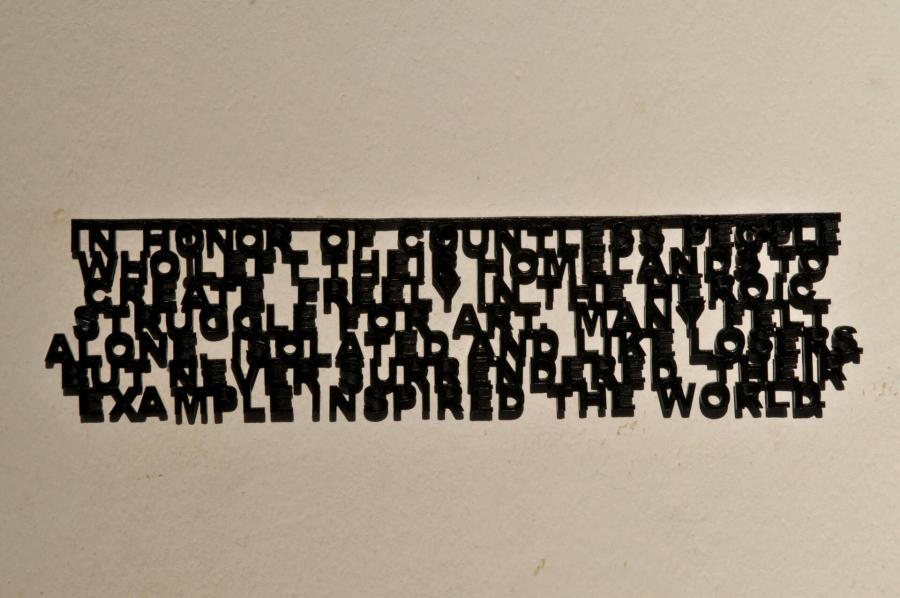 IN HONOR OF COUNTLESS PEOPLE
WHO LEFT THEIR HOMELANDS TO
CREATE FREELY IN THE HEROIC
STRUGGLE FOR ART. MANY FELT
ALONE, ISOLATED AND LIKE LOSERS,
BUT NEVER SURRENDERED. THEIR
EXAMPLE INSPIRED THE WORLD.